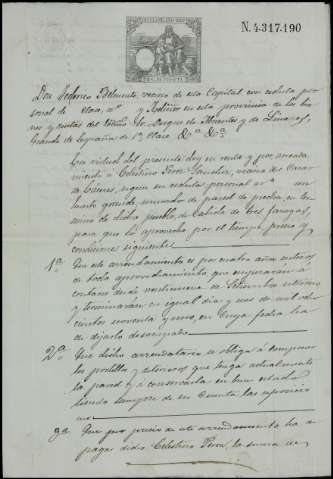 N. 4.317.190
Don Federico Belmonte, vecino de esta Capital con cedula per
sonal de clase, nº y Administ en esta provincia de los bie
nes y rentas del Exmo. Sr. Duque de Abrantes y de Linares,
Grande de España de 1ª clase &ª &ª
En virtud del presente doy en renta y por arrenda
miento á Celestino Perez Sanchez, vecino de Casar
de Caceres, segun su cedula personal nº
de cabida de tres fanegas,
para que la aproveche por el tiempo precio y
condiciones siguientes
1ª Que este arrendamiento es por cuatro años enteros
de todo aprovechamiento que empezaran á
contarse desde veintinueve de Setiembre ultimo
y terminarán en igual dia y mes de mil ocho
cientos noventa y uno, en cuya fecha ha
de dejarlo desocupado
2ª Que dicho arrendatario se obliga á componer
los portillos y deterioros que tenga actualmente
la pared y á conservarla en buen estado
siendo siempre de su cuenta las reparacio
nes
3ª Que por precio de este arrendamiento ha de
pagar dicho Celestino Perez, la suma de